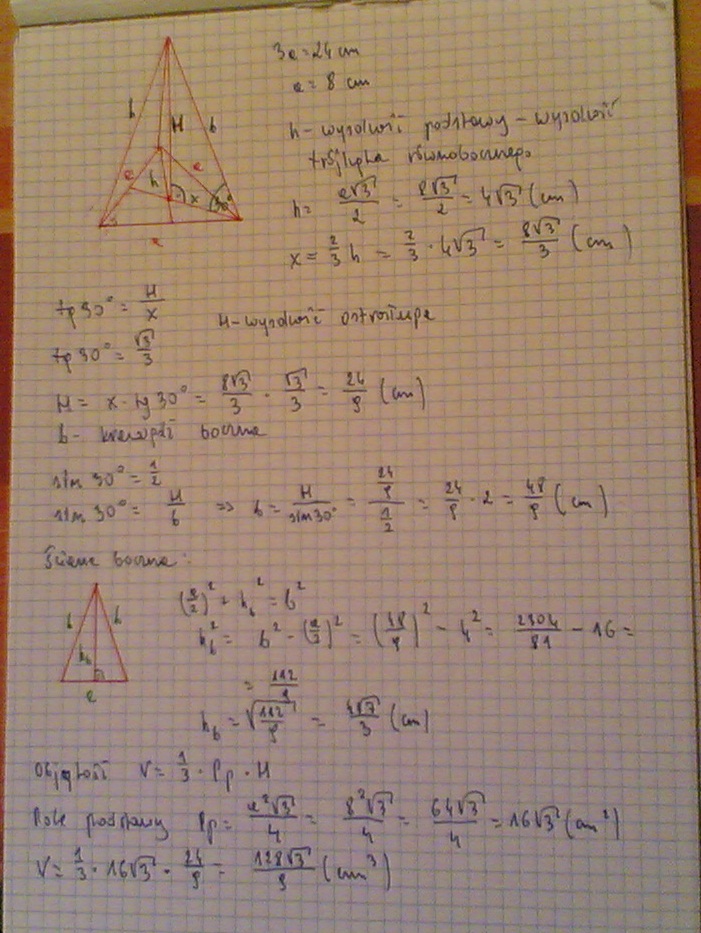 3a = 24 cm
a = 8 cm
h - wysokość podstawy - wysokość
trójkąta równobocznego
h = a√3/2 = 8√3/2 = 4√3 (cm)
x = 2/3 h = 2/3 · 4√3 = 8√3/3 (cm)
b
H
b
a
a
h
x
30°
a
tg 30° = H/x
H - wysokość ostrosłupa
tg 30° = √3/3
H = x · tg 30° = 8√3/3 · √3/3 = 24/9 (cm)
b - krawędź boczna
sin 30° = 1/2
sin 30° = H/b => b = H/sin 30° = (24/9)/(1/2) = 24/9 · 2 = 48/9 (cm)
Ściana boczna:
b
b
h_b
a
(a/2)² + h_b² = b²
h_b² = b² - (a/2)² = (48/9)² - 4² = 2304/81 - 16 =
= 112/9
h_b = √(112/9) = 4√7/3 (cm)
Objętość V = 1/3 · Pp · H
Pole podstawy Pp = a²√3/4 = 8²√3/4 = 64√3/4 = 16√3 (cm²)
V = 1/3 · 16√3 · 24/9 = 128√3/9 (cm³)